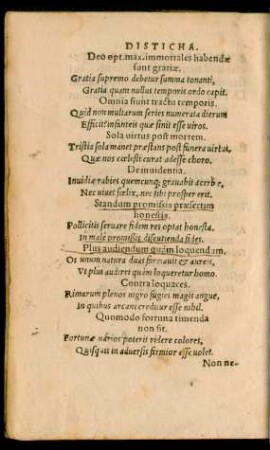 DISTICHA.
Deo opt. max. immortales habendæ
sunt gratiæ.
Gratia supremo debetur summa tonanti,
Gratia quam nullus temporis ordo capit.
Omnia fiunt tractu temporis.
Quid non multarum series numerata dierum
Efficit? infantes quæ sinit esse uiros.
Sola uirtus post mortem.
Tristia sola manet præstans post funera uirtus,
Quæ nos cœlesti curat adesse choro.
De inuidentia.
Inuidiæ rabies quemcunq; grauabit acerbæ,
Nec uiuet fœlix, nec sibi prosper erit.
Standum promissis præsertim
honestis.
Pollicitis seruare fidem res optat honesta.
In male promissis discutienda fides.
Plus audiendum quàm loquendum.
Os unum natura duas formauit & aures,
Vt plus audiret quàm loqueretur homo.
Contra loquaces.
Rimarum plenos nigro fugies magis angue,
In quibus arcani creditur esse nihil.
Quomodo fortuna timenda
non sit.
Fortunæ uarios poterit ridere colores,
Quisquis in aduersis firmior esse uolet.
Non ne-